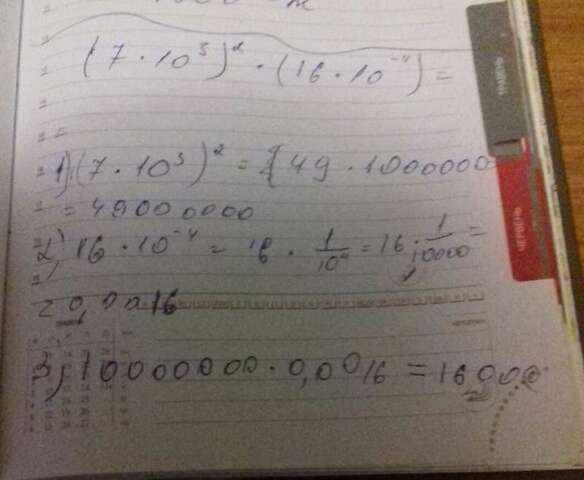 (7 · 10³)² · (16 · 10⁻⁴) =
1) (7 · 10³)² = 49 · 1000000
= 49000000
2) 16 · 10⁻⁴ = 16 · 1/10⁴ = 16 · 1/10000 =
= 0,0016
3) 10000000 · 0,0016 = 16000
ТРАВЕНЬ
ЧЕРВЕНЬ